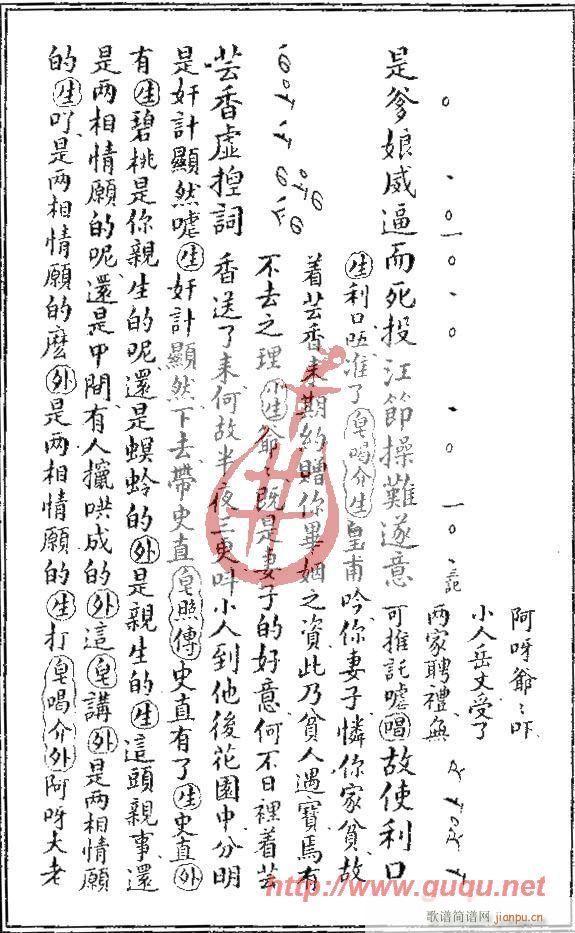 阿呀爺〻吓
小人岳丈受了
两家聘禮無
是爹娘威逼而死投江節操難遂意可推託嘘唱故使利口
生利口既准了皂喝介生皇甫吟你妻子憐你家貧故
着芸香来期約贈你畢姻之資此乃貧人遇寶焉有
不去之理小生爺〻既是妻子的好意何不日裡着芸
芸香虛揑詞香送了来何故半夜三更叫小人到他後花園中分明
是奸計顯然嘘生奸計顯然下去帶史直皂照傳史直有了生史直外
有生碧桃是你親生的呢還是螟蛉的外是親生的生這頭親事還
是两相情願的呢還是中間有人攛哄成的外這皂講外是两相情願
的生吖是两相情願的麽外是两相情願的生打皂喝介外阿呀大老
http://www.guqu.net
歌谱简谱网
jianpu.cn